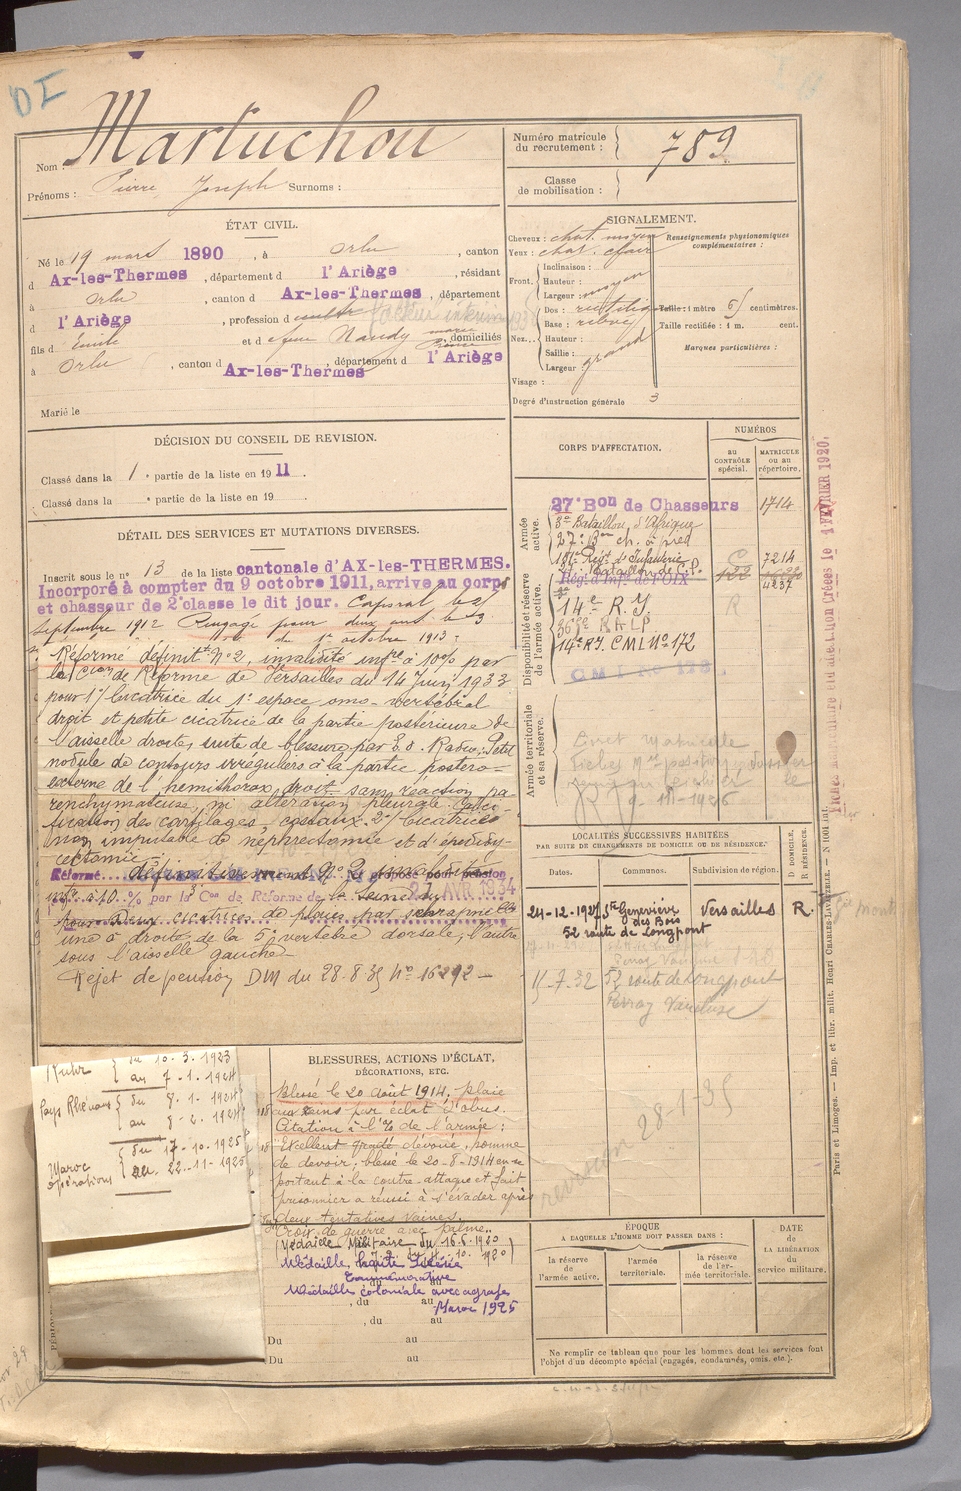 DI
Nom : Martuchou
Prénoms : Pierre Joseph Surnoms :
Numéro matricule du recrutement : 789
Classe de mobilisation :
ÉTAT CIVIL.
Né le 19 mars 1890, à Orlu, canton
d Ax-les-Thermes, département d l'Ariège, résidant
à Orlu, canton d Ax-les-Thermes, département
d l'Ariège, profession d facteur intérimaire
fils d Emile et d Naudy marie domiciliés
à Orlu, canton d Ax-les-Thermes, département d l'Ariège
Marié le
SIGNALEMENT.
Cheveux : chat. moyen
Yeux : chat. clair
Renseignements physionomiques complémentaires :
Front. Inclinaison :
Hauteur : moyen
Largeur :
Nez. Dos : rectiligne
Base : relevé
Hauteur :
Saillie : grand
Largeur
Visage :
Degré d'instruction générale 3
Taille : 1 mètre centimètres.
Taille rectifiée : 1 m. cent.
Marques particulières :
DÉCISION DU CONSEIL DE REVISION.
Classé dans la 1e partie de la liste en 1911.
Classé dans la e partie de la liste en 19
DÉTAIL DES SERVICES ET MUTATIONS DIVERSES.
Inscrit sous le n° 13 de la liste cantonale d'AX-les-THERMES.
Incorporé à compter du 9 octobre 1911, arrive au corps
et chasseur de 2e classe le dit jour. Caporal le 25
septembre 1912 Rengagé pour deux ans le 3
du 1er octobre 1913.
Réformé définitt N°2, invalidité infre à 10% par
la Cion de Réforme de Versailles du 14 Juin 1933
pour 1°/ Cicatrice du 1e espace omo-vertébral
droit et petite cicatrice de la partie postérieure de
l'aisselle droite, suite de blessure par E.O. Radio : Petit
nodule de contours irréguliers à la partie postero-
externe de l'hemithorax droit sans réaction pa-
renchymateuse, ni altération pleurale. Calci-
fication des cartilages costaux. 2°/ Cicatrices
non imputable de nephrectomie et d'épididy-
mectomie.
Réformé définitivement N° 2
infre à 10 % par la 3e Con de Réforme de la Seine du 27 AVR 1934
pour deux cicatrices de plaies par shrapnells
une à droite de la 5e vertèbre dorsale, l'autre
sous l'aisselle gauche -
Rejet de pension DM du 28.8.35 N° 16292 -
CORPS D'AFFECTATION.
NUMÉROS
au CONTRÔLE spécial.
MATRICULE ou au répertoire.
Armée active.
27e Bon de Chasseurs 1714
3e Bataillon d'Afrique
27e Bon ch. à pied
Disponibilité et réserve de l'armée active.
Régt d'Infanterie 7214
Rég. d'Infie de FOIX 122 4237
14e R.I.
R.A.L.P.
14e R.I. C.M.I. N° 172
Armée territoriale et sa réserve.
Livret Matricule
Fiches Créées le 1 FÉVRIER 1920.
LOCALITÉS SUCCESSIVES HABITÉES
PAR SUITE DE CHANGEMENTS DE DOMICILE OU DE RÉSIDENCE.
D DOMICILE, R RÉSIDENCE.
Dates. Communes. Subdivision de région.
24-12-1927 Ste Geneviève des Bois Versailles R.
52 route de Longpont
15-7-32 52 route de Longpont
Perray Vaucluse
revision 28-1-35
Ruhr { du 10.3.1923
au 7.1.1924
Pays Rhénans { du 8.1.1924
au 8.2.1924
Maroc opérations { du 17.10.1925
au 22.11.1925
BLESSURES, ACTIONS D'ÉCLAT,
DÉCORATIONS, ETC.
Blessé le 20 août 1914, plaie
aux reins par éclat d'obus.
Citation à l'O/ de l'armée :
"Excellent gradé dévoué, homme
de devoir ; blessé le 20-8-1914 en se
portant à la contre-attaque et fait
prisonnier a réussi à s'évader après
deux tentatives vaines.
Croix de guerre avec palme.
Médaille Militaire du 16.6.1920
Médaille Haute Silésie
Commémorative
Médaille coloniale avec agrafe
Maroc 1925
, du au
, du au
Du au
Du au
ÉPOQUE
À LAQUELLE L'HOMME DOIT PASSER DANS :
la réserve de l'armée active.
l'armée territoriale.
la réserve de l'armée territoriale.
DATE de LA LIBÉRATION du service militaire.
Ne remplir ce tableau que pour les hommes dont les services font
l'objet d'un décompte spécial (engagés, condamnés, omis, etc.).
Paris et Limoges. — Imp. et libr. milit. Henri CHARLES-LAVAUZELLE.